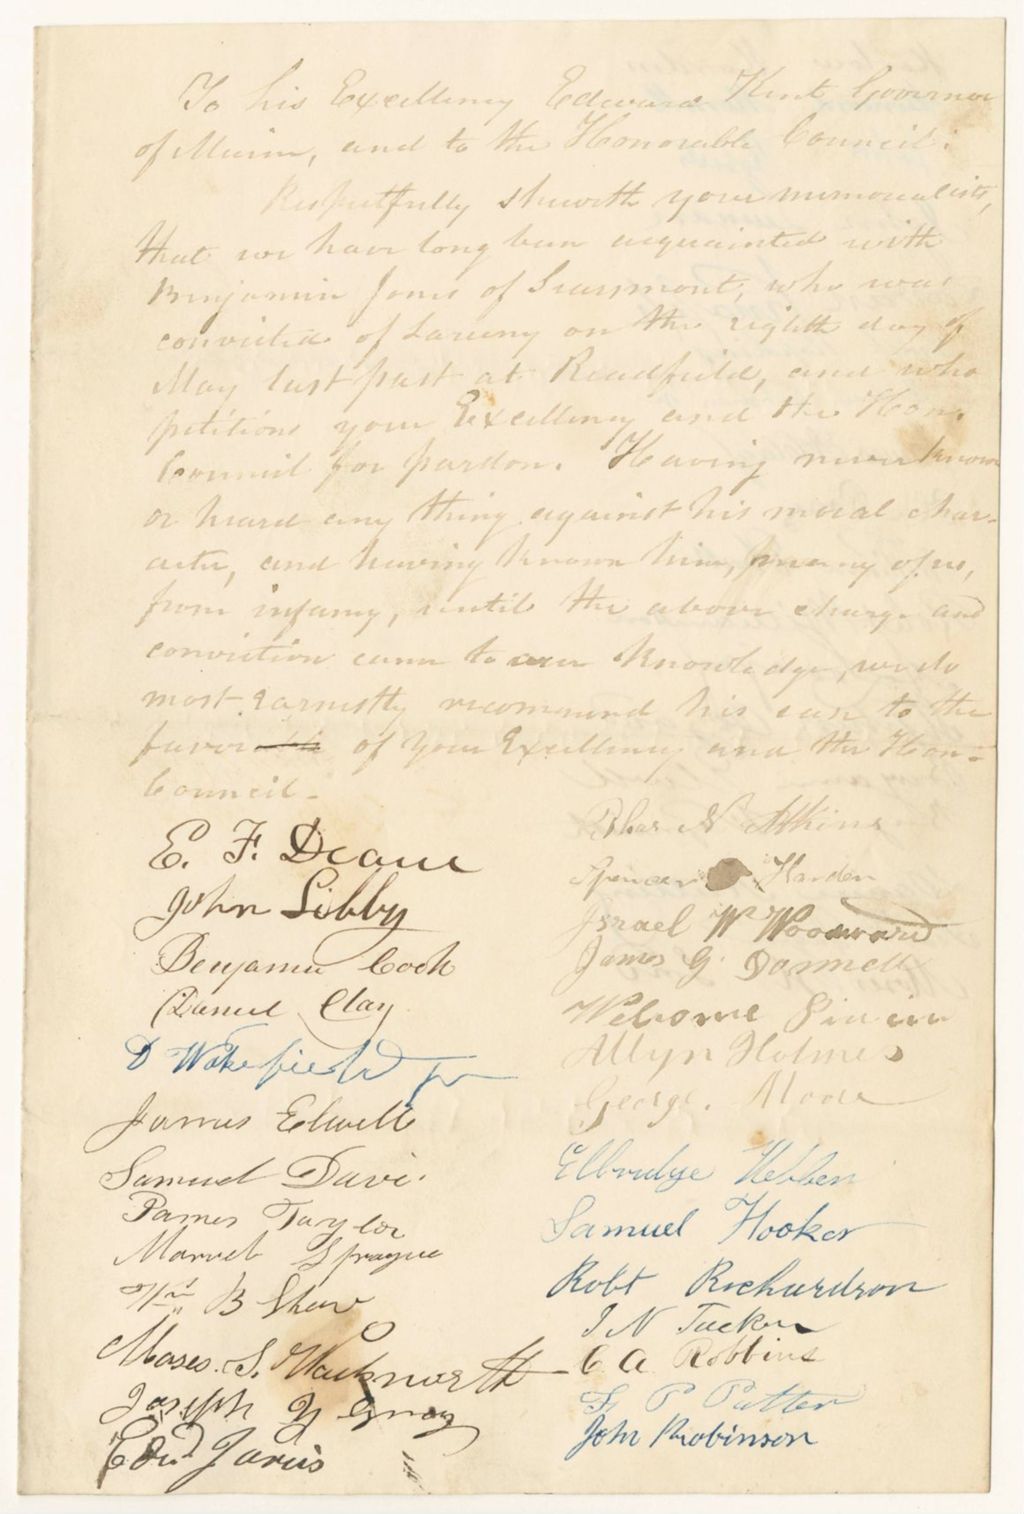 To his Excellency Edward Kent Governor
of Maine, and to the Honorable Council.
Respectfully sheweth your memorialists,
that we have long been acquainted with
Benjamin Jones of Searsmont, who was
convicted of Larceny on the eighth day of
May last past at Readfield, and who
petitions your Excellency and the Hon.
Council for pardon. Having never known
or heard any thing against his moral char-
acter, and having known him, many of us,
from infancy, until the above charge and
conviction came to our knowledge, we do
most earnestly recommend his case to the
favor of your Excellency and the Hon-
Council-
E. F. Deane
John Libby
Benjamin Cook
Daniel Clay
D Wakefield Jr
James Elwell
Samuel Davis
James Taylor
Marvel Sprague
Wm B Shaw
Moses S. Wadsworth
Joseph Y Gray
Edwd Jarvis
N Atkins
Spencer Harden
Israel W Woodward
James G. Donnell
Welcome
Allyn Holmes
George. Moore
Elbridge
Samuel Hooker
Robt Richardson
I N Tucker
C A Robbins
P Potter
John Robinson